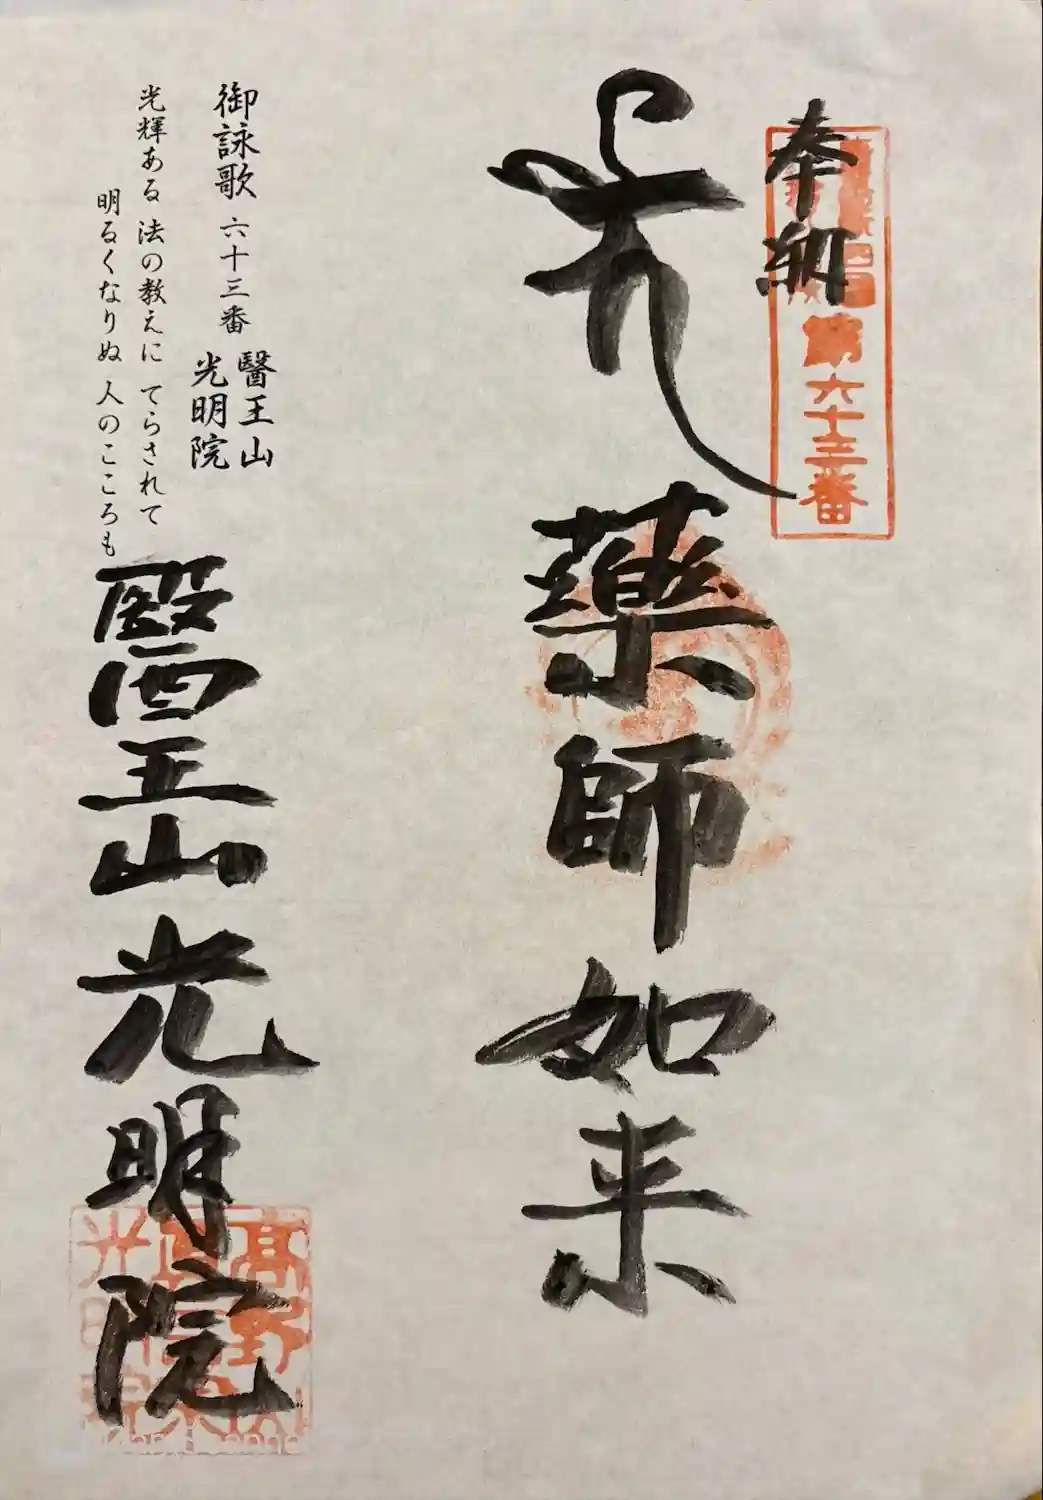 奉納
第六十三番
薬師如来
御詠歌 六十三番 醫王山 光明院
光輝ある 法の教えに てらされて
明るくなりぬ 人のこころも
醫王山光明院
高野山
光明院